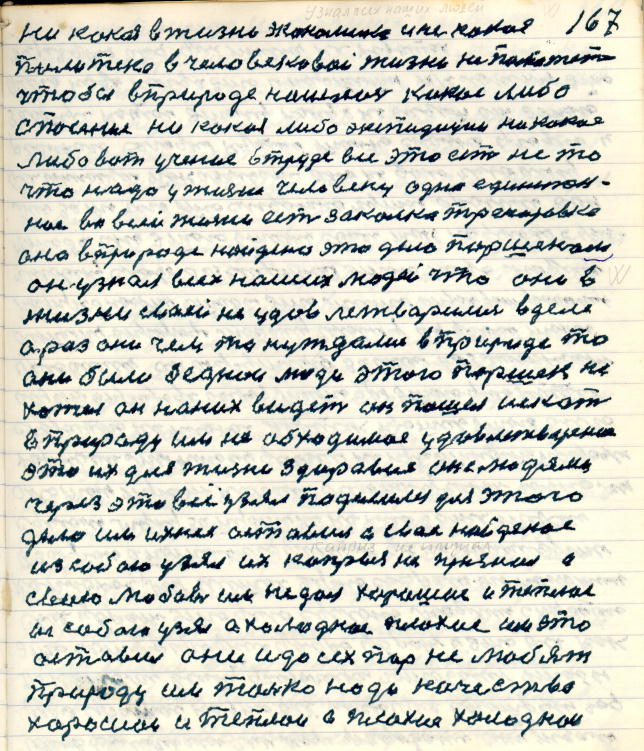 Узнал всех наших людей
167
ни какая в жизнь экономика и не какая
политека в человековай жизнь не поможет
чтобы в природе нашлось какое либо
спосения ни какая либо экспидиции не какое
либо вот учение в труде все это ест не то
что надо у жизни человеку одна единствен-
ное во всей жизни ест закалка тренеровка
она в природе найдена это дело Паршеком
он узнал всех наших людей что они в
жизни своей не удовлетварились в деле
а раз они чем то нуждалис в природе то
они были бедное люди этого Паршек не
хотел он на них видет он пошел искат
в природу им не обходимое удовлетварение
это их для жизни здоравия они людями
через это все узял поделилис для этого
дело им ихнее оставил а свае найденое
из собою узял их капрыз не принял а
своею любовь им не дал харошие и теплое
из собою узял а холодное плохое им это
оставил они и до сех пор не любят
природу им толко надо качества
харошои и теплои а плохия холодной